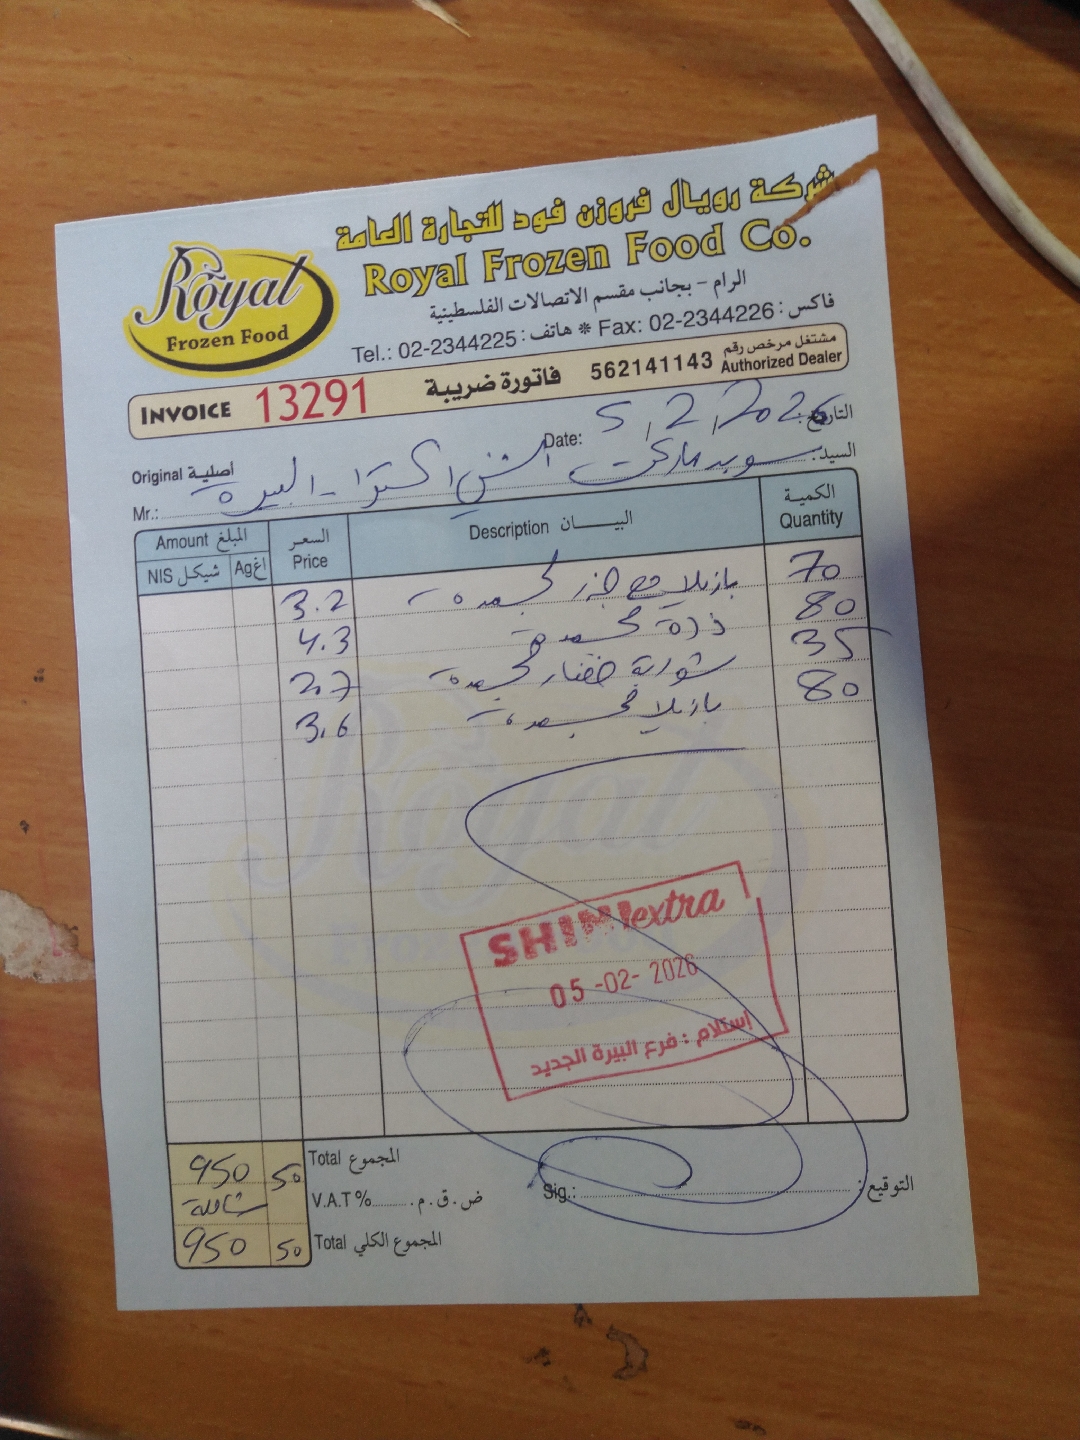 شركة رويال فروزن فود للتجارة العامة
Royal Frozen Food Co.
Royal
Frozen Food
الرام - بجانب مقسم الاتصالات الفلسطينية
Tel.: 02-2344225 : هاتف * Fax: 02-2344226 : فاكس
INVOICE 13291 فاتورة ضريبة 562141143 مشتغل مرخص رقم Authorized Dealer
التاريخ: Date: 5/2/2026
Original أصلية
السيد: سوبر ماركت الشني اكسترا - البيرة Mr.:
الكمية Quantity البيــان Description السعر Price المبلغ Amount
اغ Ag شيكل NIS
70 بازيلا مع جزر مجمدة 3.2
80 ذرة مجمدة 4.3
35 شوربة خضار مجمدة 2.7
80 بازيلا مجمدة 3.6
SHINI extra
05-02-2026
إستلام : فرع البيرة الجديد
المجموع Total 950 50
ض.ق.م. V.A.T % شاملة
المجموع الكلي Total 950 50
التوقيع: Sig.: